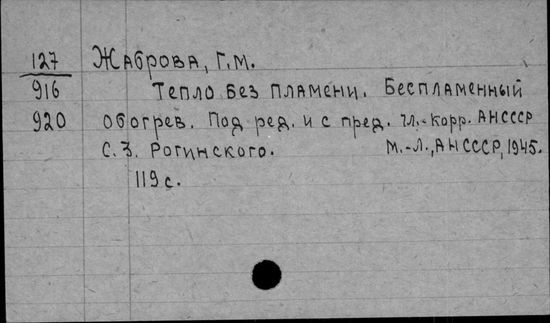 127 Жаброва, Г.М.
916 Тепло без пламени. Беспламенный
920 обогрев. Под ред. и с пред. чл.-корр. АНСССР
С.З. Рогинского. М.-Л., АНСССР, 1945.
119 с.